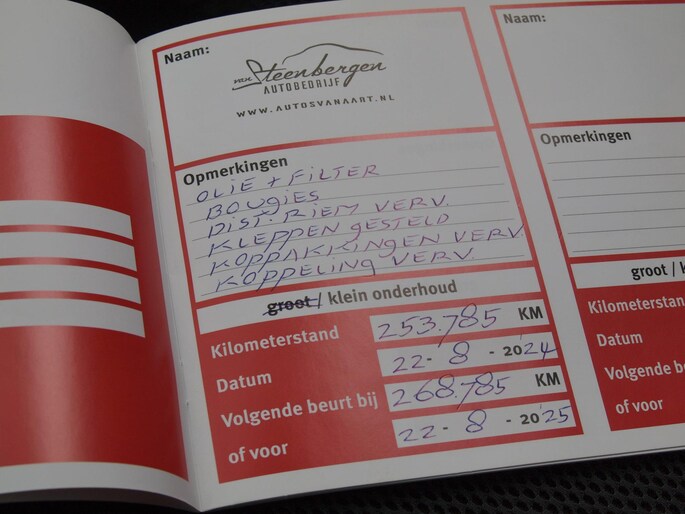 Naam:
van Steenbergen
AUTOBEDRIJF
WWW.AUTOSVANAART.NL
Opmerkingen
OLIE + FILTER
BOUGIES
DIST. RIEM VERV.
KLEPPEN GESTELD
KOPPAKKINGEN VERV.
KOPPELING VERV.
groot / klein onderhoud
Kilometerstand 253.785 KM
Datum 22-8-2024
Volgende beurt bij 268.785 KM
of voor 22-8-2025
Naam:
Opmerkingen
groot /
Kilometerstand
Datum
Volgende
of voor